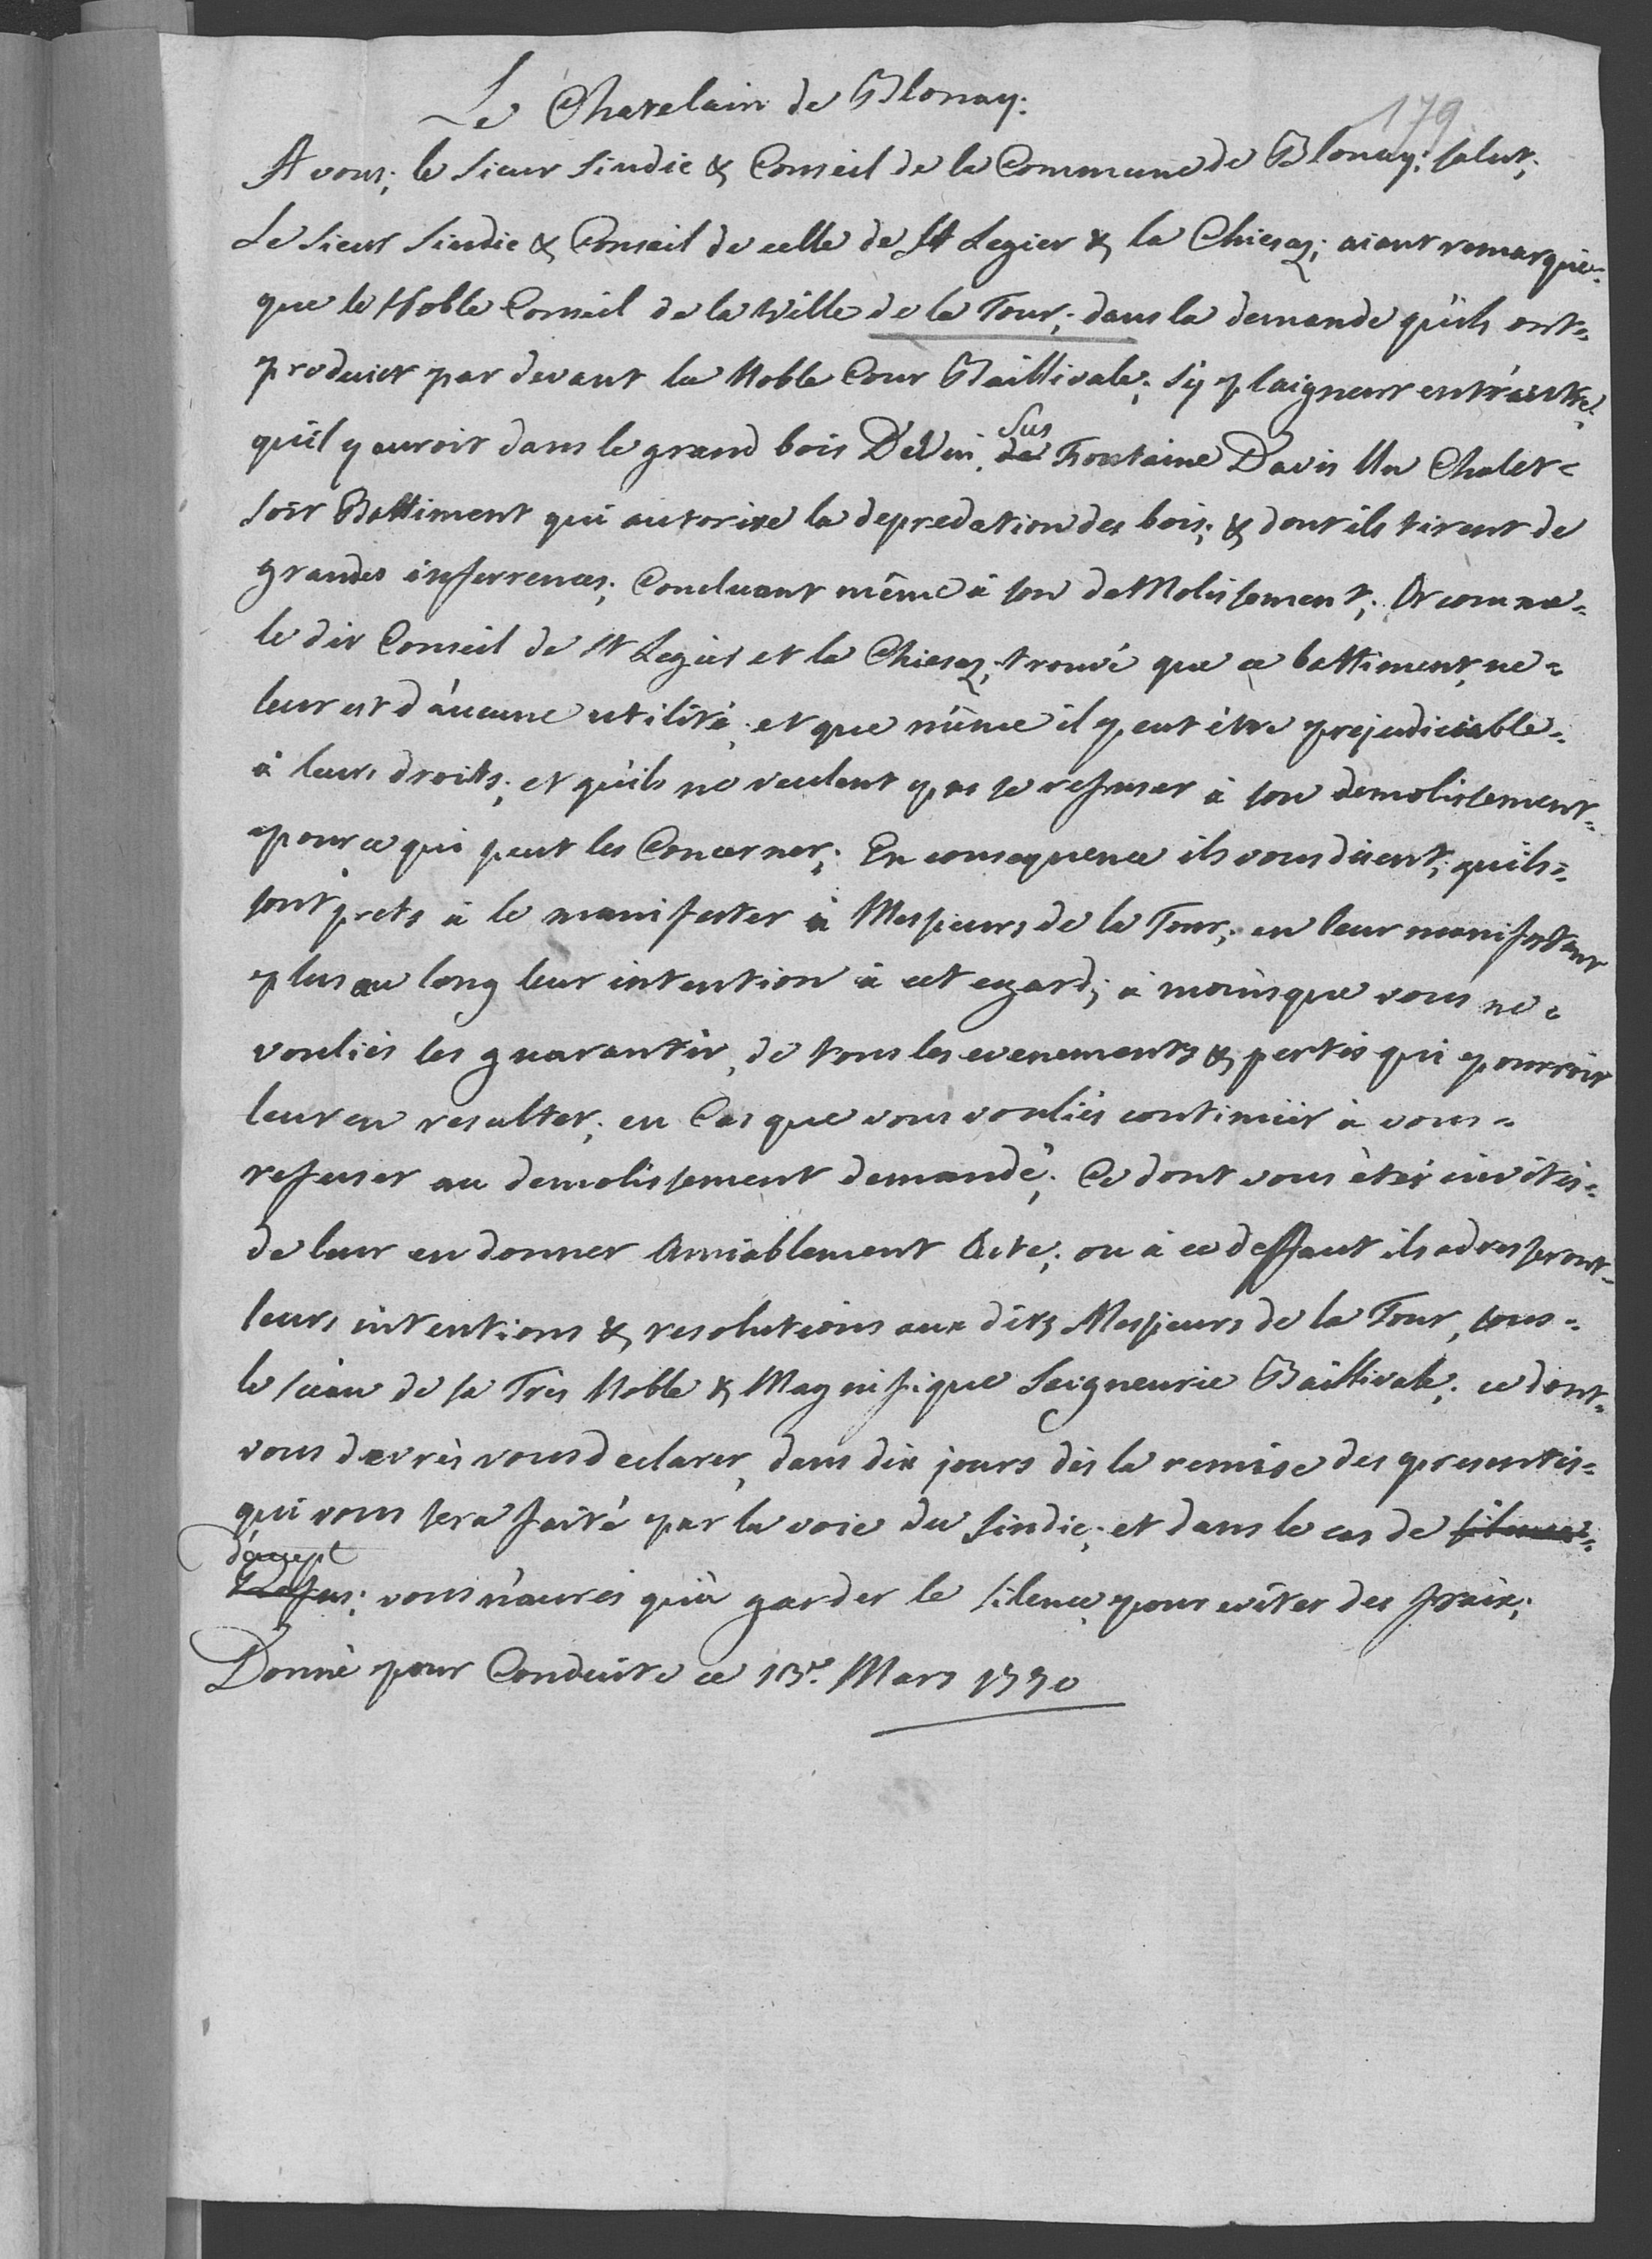 Le Chatelain de Blonay.
179
A vous; le Sieur Sindic & Conseil de la Commune de Blonay; salut;
Le Sieur Sindic & Conseil de celle de St Legier & la Chiesaz; aiant remarqué=
que le Noble Conseil de la Ville de la Tour; dans la demande qu'ils ont=
produict par devant la Noble Cour Baillivale; s'y plaignent entr'autre;
qu'il y auroit dans le grand bois Devin, de Sus Fontaine Davis Un Chalet=
soit Battiment qui autorise la depredation des bois; & dont ils tirent de
grandes inferrences; Concluant même à son deMolissement; Or comme=
le dit Conseil de St Legier et la Chiesaz; trouvé que ce battiment, ne=
leur est d'aucune utilité, et que même il peut être préjudiciable=
à leurs droits; et qu'ils ne veulent pas se refuser à son demolissement=
pour ce qui peut les Concerner; En consequence ils vous disent; quils=
sont prets à le manifester à Messieurs de la Tour; en leur manifestant
plus au long leur intention à cet egard; à moins que vous ne=
vouliés les guarantir, de tous les evenements & pertes qui pourroit
leur en resulter; en Cas que vous vouliés continuir à vous=
refuser au demolissement demandé; Ce dont vous étés invités=
de leur en donner Amiablement Acte; ou à ce deffaut ils adresseront=
leurs intentions & resolutions aux dits Messieurs de la Tour, sous=
le sçeau de sa Très Noble & Magnifique Seigneurie Baillivale; ce dont=
vous devrés vous declarer, dans dix jours dès la remise des presentes=
qui vous sera faite par la voie du Sindic; et dans le cas de silence=
d'accept
Refus; vous n'aurés qu'à garder le silence pour eviter des fraix;
Donné pour Conduite ce 13e. Mars 1790